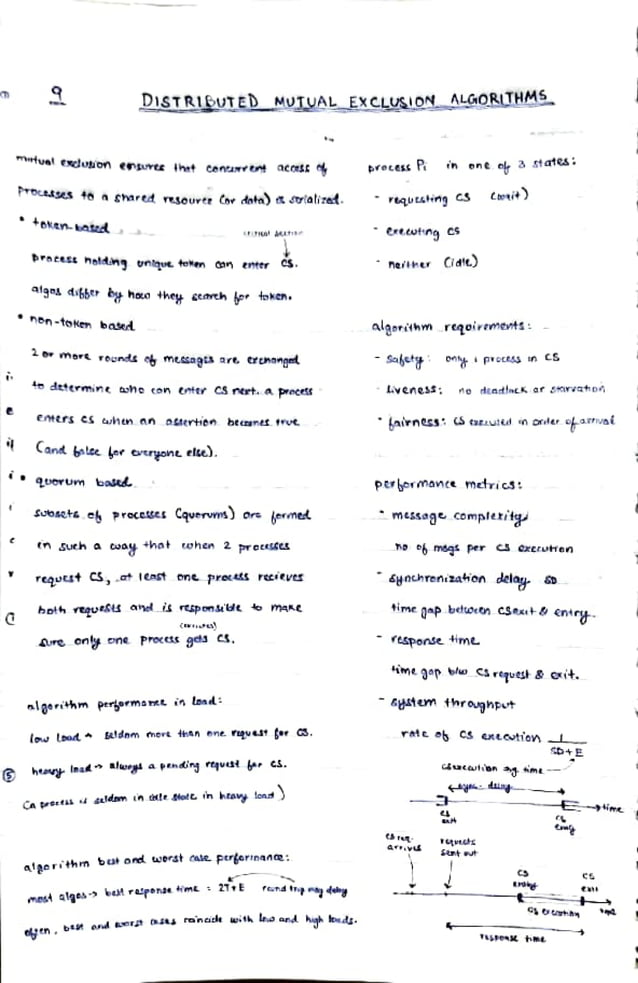 9
DISTRIBUTED MUTUAL EXCLUSION ALGORITHMS
mutual exclusion ensures that concurrent access of
processes to a shared resource (or data) is serialized.
• token-based
critical section
process holding unique token can enter CS.
algos differ by how they search for token.
• non-token based
2 or more rounds of messages are exchanged
to determine who can enter CS next. a process
enters CS when an assertion becomes true
(and false for everyone else).
• quorum based
subsets of processes (quorums) are formed
in such a way that when 2 processes
request CS, at least one process recieves
both requests and is responsible to make
sure only one process gets CS.
algorithm performance in load:
low load → seldom more than one request for CS.
heavy load → always a pending request for CS.
(a process is seldom in idle state in heavy load)
algorithm best and worst case performance:
most algos → best response time = 2T+E round trip msg delay
often, best and worst cases coincide with low and high loads.
process Pi in one of 3 states:
- requesting CS (wait)
- executing CS
- neither (idle)
algorithm requirements:
- safety: only 1 process in CS
- liveness: no deadlock or starvation
- fairness: CS executed in order of arrival
performance metrics:
- message complexity
no of msgs per CS execution
- synchronization delay SD
time gap between CS exit & entry.
- response time
time gap b/w CS request & exit.
- system throughput
rate of CS execution 1
SD+E
CS execution avg time
sync. delay
time
CS exit
CS entry
CS req. arrives
requests sent out
CS entry
CS exit
CS execution
time
response time
5